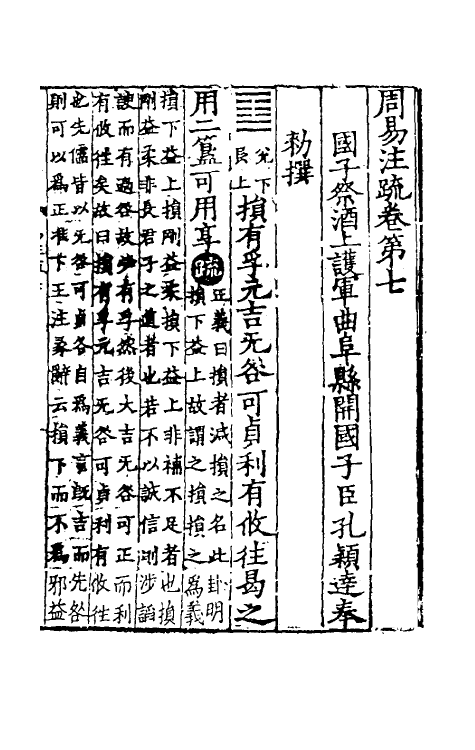 周易注疏卷第七
國子祭酒上護軍曲阜縣開國子臣孔穎達奉
勑撰
䷨
兊下
艮上
損有孚元吉无咎可貞利有攸往曷之
用二簋可用享
疏
正義曰損者減損之名此卦明
損下益上故謂之損損之爲義
損下益上損剛益柔損下益上非補不足者也損
剛益柔非長君子之道者也若不以誠信則涉謟
諛而有過咎故必有孚然後大吉无咎可正而利
有攸往矣故曰損有孚元吉无咎可貞利有攸往
也先儒皆以无咎可貞各自爲義言旣吉而无咎
則可以爲正準下王注彖辭云損下而不爲邪益